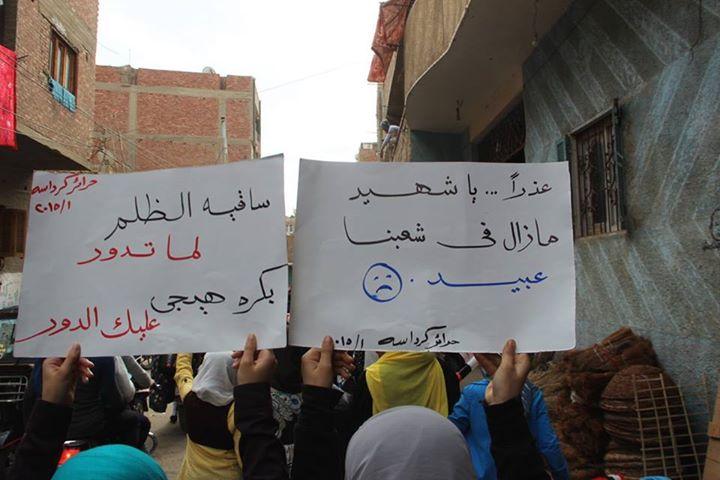 عذراً ... يا شهيد
مازال فى شعبنا
عبيد .
حرائر كرداسه ٢٠١٥/١
حرائر كرداسه
٢٠١٥/١
ساقيه الظلم
لما تدور
بكره هيجى
عليك الدور